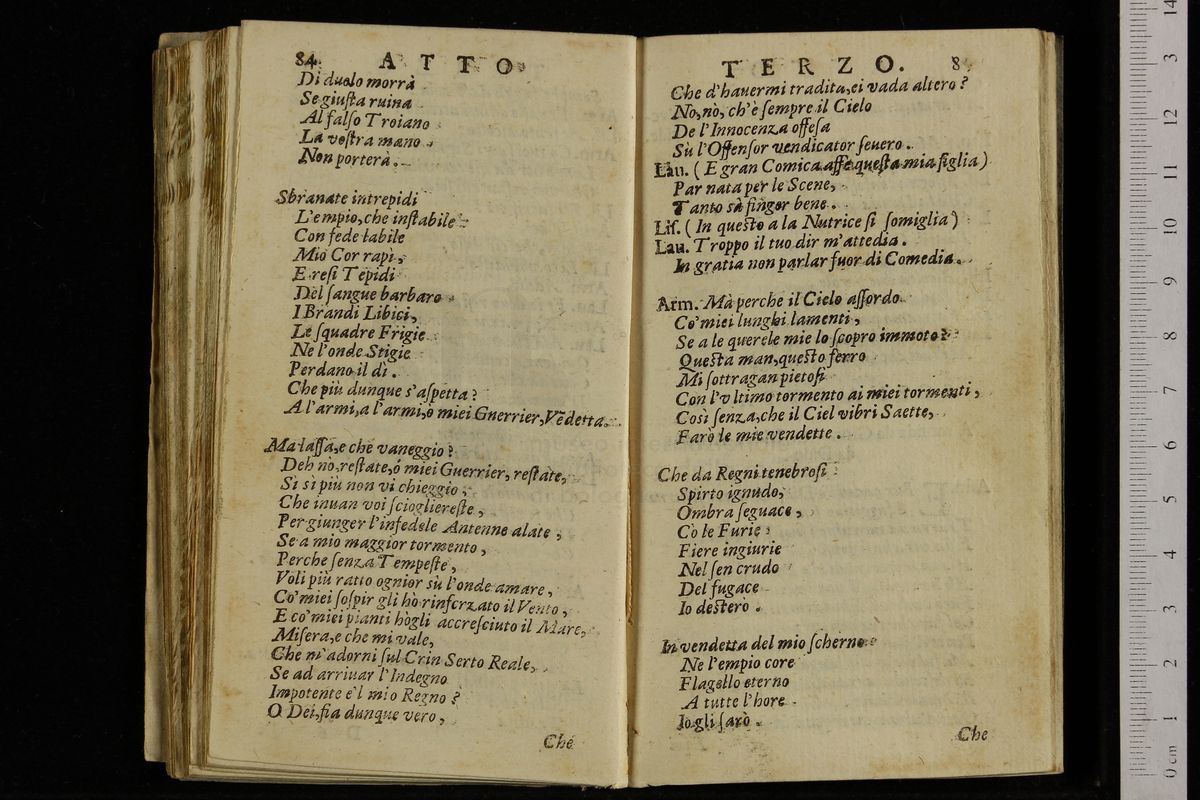 84. ATTO
Di duolo morrà
Se giuſta ruina
Al falſo Troiano
La voſtra mano
Non porterà.
Sbranate intrepidi
L'empio, che inſtabile
Con fede labile
Mio Cor rapì,
E reſi Tepidi
Del ſangue barbaro
I Brandi Libici,
Le ſquadre Frigie
Ne l'onde Stigie
Perdano il dì.
Che più dunque s'aſpetta?
A l'armi, a l'armi, ò miei Guerrier, Vēdetta.
Ma laſſa, e che vaneggio?
Deh nò, reſtate, ò miei Guerrier, reſtate,
Sì sì più non vi chieggio,
Che inuan voi ſciogliereſte,
Per giunger l'infedele Antenne alate,
Se a mio maggior tormento,
Perche ſenza Tempeſte,
Voli più ratto ognior sù l'onde amare,
Co' miei ſoſpir gli hò rinforzato il Vento,
E co' miei pianti hògli accreſciuto il Mare,
Miſera, e che mi vale,
Che m'adorni ſul Crin Serto Reale,
Se ad arriuar l'Indegno
Impotente è'l mio Regno?
O Dei, fia dunque vero,
Che
TERZO. 8
Che d'hauermi tradita, ei vada altero?
No, nò, ch'è ſempre il Cielo
De l'Innocenza offeſa
Sù l'Offenſor vendicator ſeuero.
Lau. (E gran Comica affe queſta mia figlia)
Par nata per le Scene,
Tanto sà finger bene.
Liſ. (In queſto a la Nutrice ſi ſomiglia)
Lau. Troppo il tuo dir m'attedia.
In gratia non parlar fuor di Comedia.
Arm. Mà perche il Cielo aſſordo
Co' miei lunghi lamenti,
Se a le querele mie lo ſcopro immoto?
Queſta man, queſto ferro
Mi ſottragan pietoſi
Con l'vltimo tormento ai miei tormenti,
Così ſenza, che il Ciel vibri Saette,
Farò le mie vendette.
Che da Regni tenebroſi
Spirto ignudo,
Ombra ſeguace,
Cò le Furie
Fiere ingiurie
Nel ſen crudo
Del fugace
Io deſterò.
In vendetta del mio ſcherno
Ne l'empio core
Flagello eterno
A tutte l'hore
Io gli ſarò.
Che